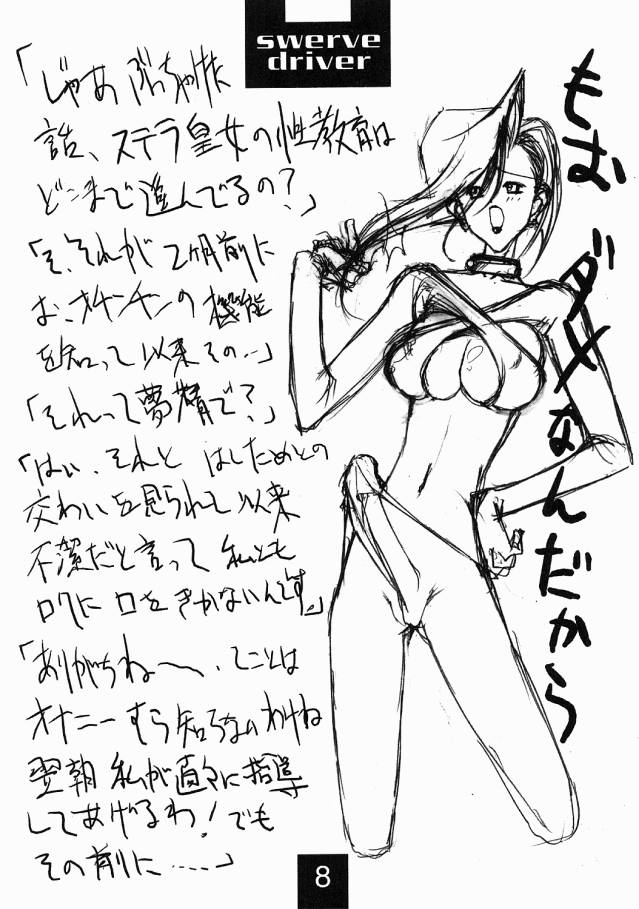 swerve
driver
「じゃあ ぶっちゃけた
話、ステラ皇女の性教育は
どこまで進んでるの?」
「そ、それが 2ヶ月前に
お、オチンチンの機能
を知って以来その…」
「それって夢精で?」
「はい、それと はしためとの
交わいを見られて以来
不潔だと言って 私とも
ロクに口をきかないんです。」
「ありがちね〜、てことは
オナニーすら知らないわけね
翌朝 私が直々に指導
してあげるわ!でも
その前に……」
もむ ダメなんだから
8